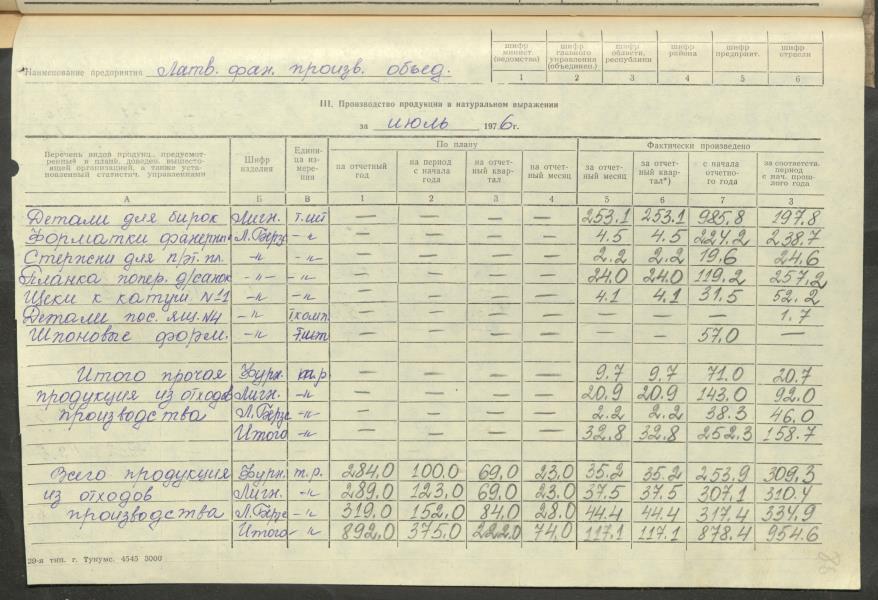 шифр минист. (ведомства) шифр главного управления (объединен.) шифр области, республики шифр района шифр предприят. шифр отрасли
Наименование предприятия Латв. фан. произв. объед.
1 2 3 4 5 6
III. Производство продукции в натуральном выражении
за июль 1976 г.
Перечень видов продукц., предусмотренный в планн. доведен. вышестоящей организацией, а также установленный статистич. управлениями Шифр изделия Единица измерения По плану Фактически произведено
на отчетный год на период с начала года на отчетный квартал на отчетный месяц за отчетный месяц за отчет. квартал*) с начала отчетного года за соответств. период с нач. прошлого года
А Б В 1 2 3 4 5 6 7 8
Детали для бирок Лигн. т.шт — — — — 253.1 253.1 985.8 197.8
Форматки фанерные Л.Берзс -"- — — — — 4.5 4.5 224.2 238.7
Стержни для п/эт. пл. -"- -"- — — — — 2.2 2.2 19.6 24.6
Планка попер. д/санок -"- -"- — — — — 24.0 24.0 119.2 257.2
Щеки к катуш №1 -"- -"- — — — — 4.1 4.1 31.5 52.2
Детали пос. ящ. №4 -"- т.комп. — — — — — — — 1.7
Шпоновые форм. -"- т.шт — — — — — 57.0 —
Итого прочая Фурн. т.р — — — — 9.7 9.7 71.0 20.7
продукция из отходов Лигн. -"- — — — — 20.9 20.9 143.0 92.0
производства Л.Берзс -"- — — — — 2.2 2.2 38.3 46.0
Итого -"- — — — — 32.8 32.8 252.3 158.7
Всего продукция Фурн. т.р. 284.0 100.0 69.0 23.0 35.2 35.2 253.9 309.3
из отходов Лигн. -"- 289.0 123.0 69.0 23.0 37.5 37.5 307.1 310.4
производства Л.Берзс -"- 319.0 152.0 84.0 28.0 44.4 44.4 317.4 334.9
Итого -"- 892.0 375.0 222.0 74.0 117.1 117.1 878.4 954.6
29-я тип. г. Тукумс. 4545 3000